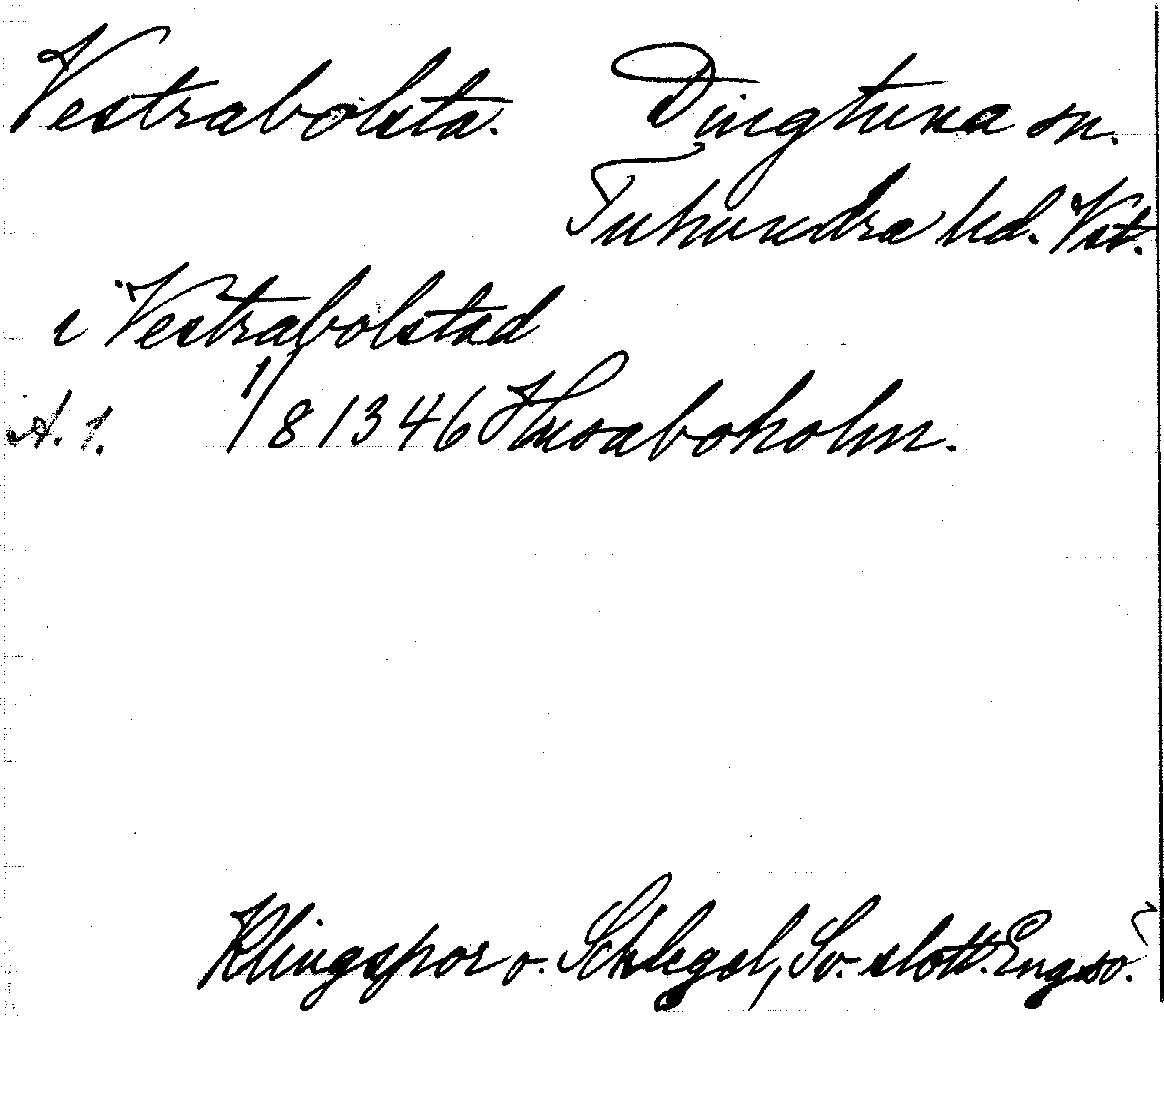 Vestrabolsta. Dingtuna sn.
Tuhundra hd. Vst.
i Vestrabolstad
A. 1. 1/8 1346 Husaboholm.
Klingspor o. Schlegel, Sv. slott. Engsö.